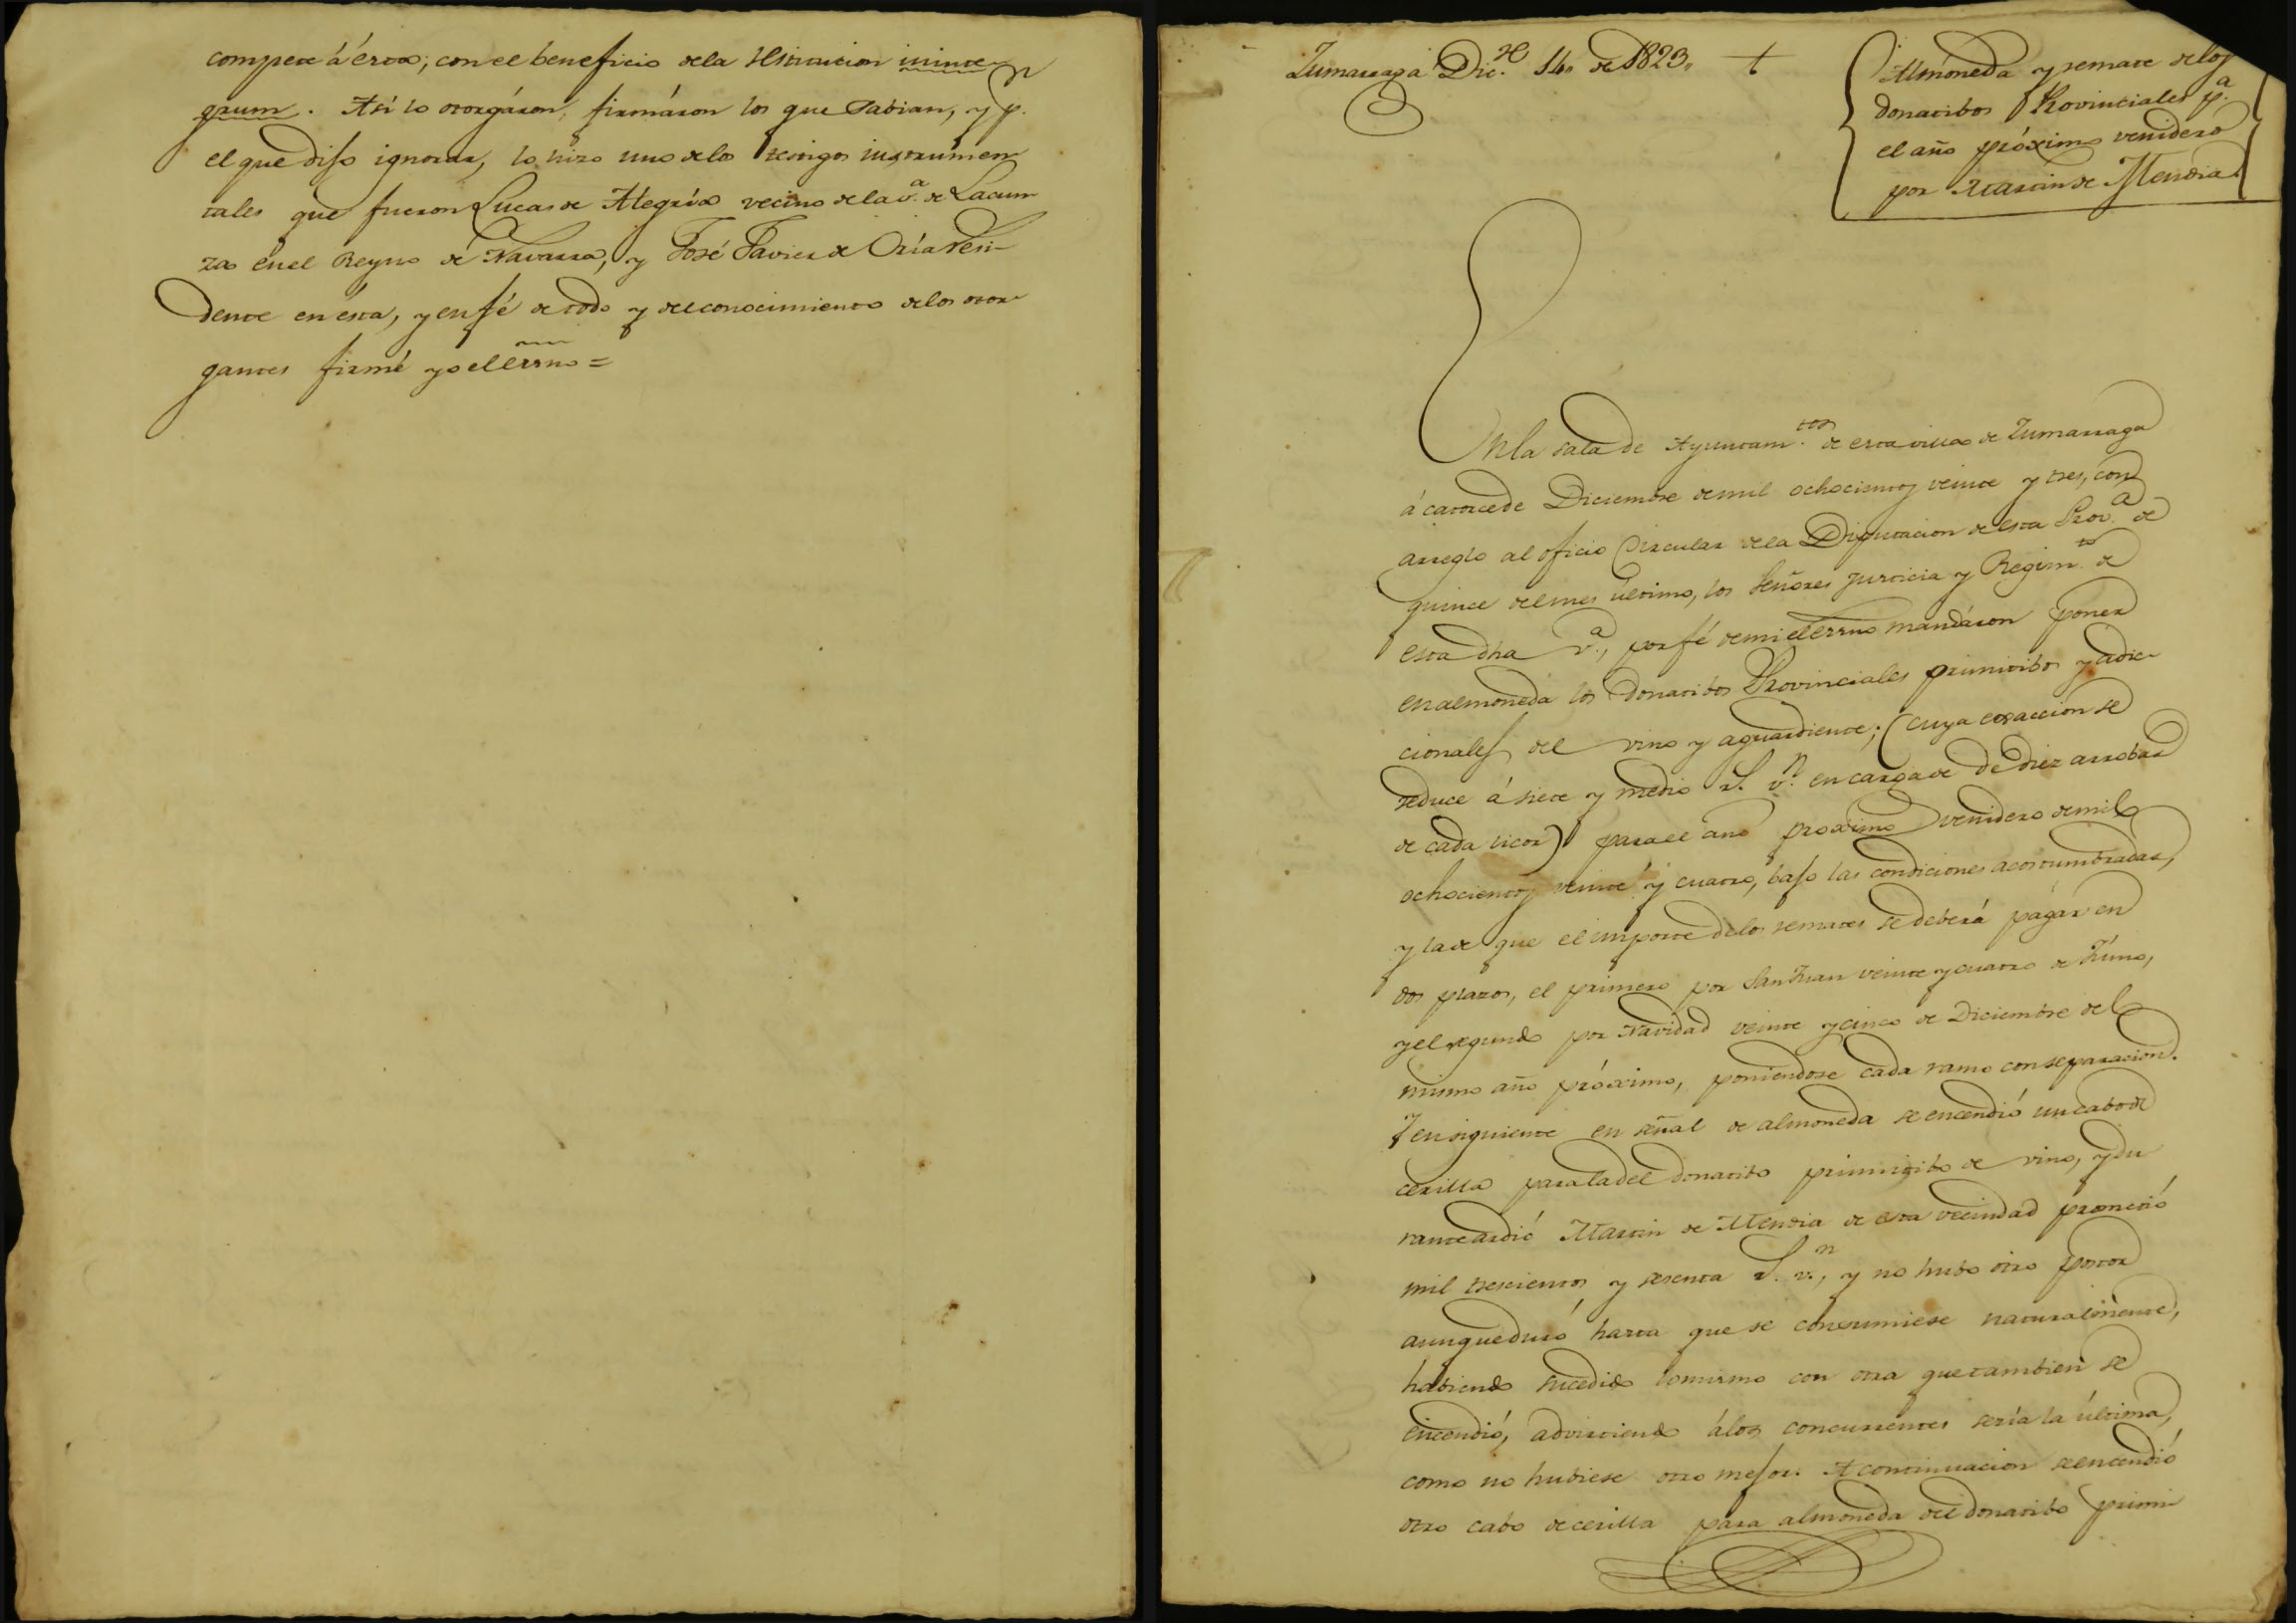 compete á ésta; con el beneficio de la restitucion in inte-
grum. Así lo otorgáron, firmáron los que sabian, y p.r
el que dijo ignorar, lo hizo uno de los testigos instrumen-
tales que fueron Lucas de Alegría vecino de la v.a de Lacun-
za en el Reyno de Navarra, y José Javier de Oría resi-
dente en ésta, y en fé de todo y del conocimiento de los otor-
gantes firmé yo el Essno =
Zumarraga Dic.re 14 de 1823.
Almoneda y remate de los
donatibos Provinciales p.a
el año próximo venidero
por Martin de Mendia
En la sala de Ayuntam.tos de esta villa de Zumarraga
á catorce de Diciembre de mil ochocientos veinte y tres, con
arreglo al oficio Circular de la Diputacion de esta Prov.a de
quince del mes último, los Señores Justicia y Regim.to de
esta dha v.a, por fé de mi el Essno mandáron poner
en almoneda los Donatibos Provinciales primitibos y adic-
cionales del vino y aguardiente; (cuya exaccion se
reduce á siete y medio r.s v.n en carga de de diez arrobas
de cada licor) para el año proximo venidero de mil
ochocientos veinte y cuatro, bajo las condiciones acostumbradas,
y la de que el importe de los remates se deberá págar en
dos plazos, el primero por San Juan veinte y cuatro de Junio,
y el segundo por Navidad veinte y cinco de Diciembre del
mismo año próximo, poniendose cada ramo con separacion.
Y en siguiente en señal de almoneda se encendió un cabo de
cerilla para la del donatibo primitibo de vino, y du-
rante ardió Martin de Mendia de esta vecindad prometió
mil trescientos y sesenta r.s v.n, y no hubo otro postor
aunque duró hasta que se consumiese naturalmente,
habiendo sucedido lo mismo con otra que tambien se
encendió, advirtiendo á los concurrentes sería la última,
como no hubiese otro mejor. A continuacion se encendió
otro cabo de cerilla para almoneda del donatibo primi-